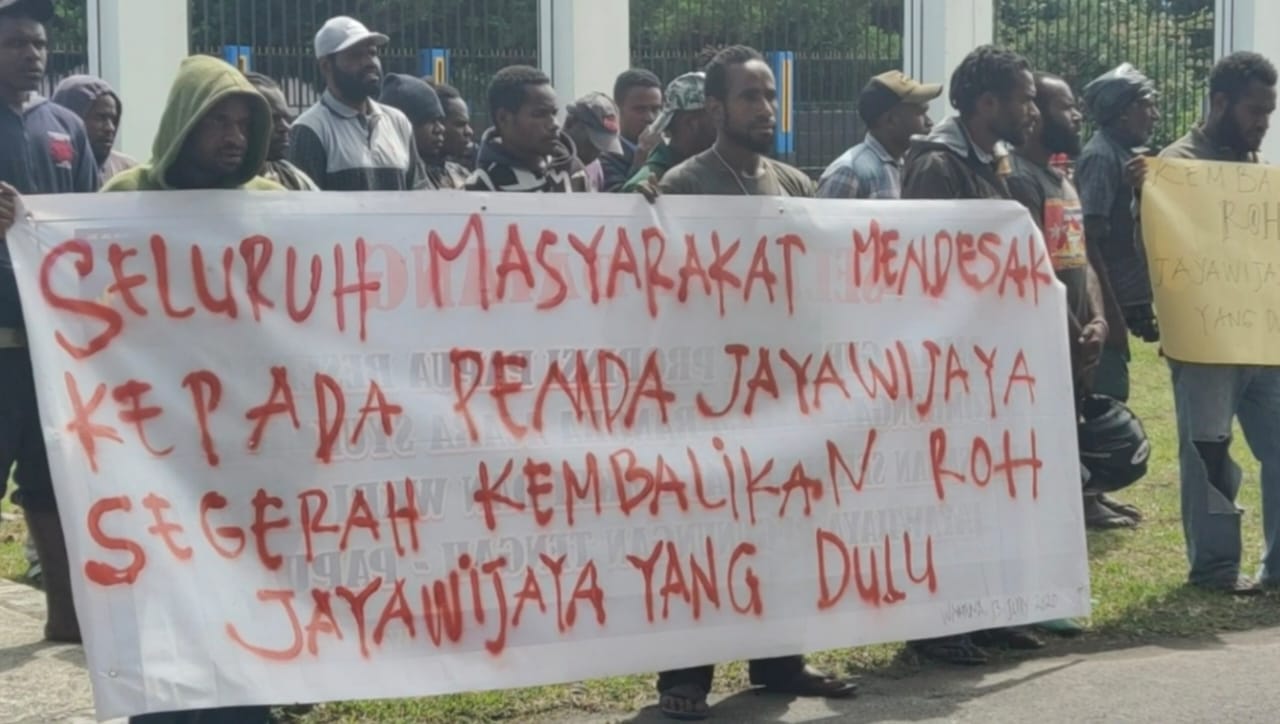 SELURUH MASYARAKAT MENDESAK
KEPADA PEMDA JAYAWIJAYA
SEGERAH KEMBALIKAN ROH
JAYAWIJAYA YANG DULU
WAMENA, 13 JULY 2020
KEMBA
ROH
JAYAWIJA
YANG D